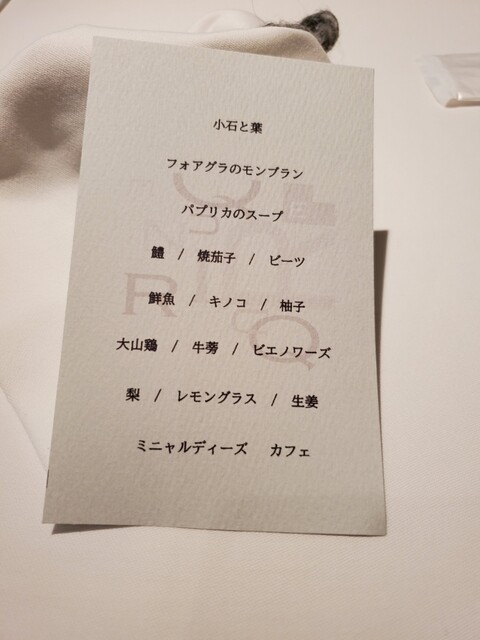 小石と葉
フォアグラのモンブラン
パプリカのスープ
鱧 / 焼茄子 / ビーツ
鮮魚 / キノコ / 柚子
大山鶏 / 牛蒡 / ビエノワーズ
梨 / レモングラス / 生姜
ミニャルディーズ カフェ